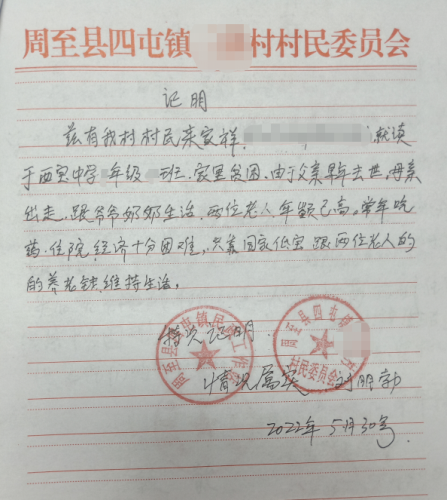 周至县四屯镇 村村民委员会
证明
兹有我村村民来家祥, 就读
于西里中学 年级 班,家里贫困,由于父亲早年去世,母亲
出走,跟爷爷奶奶生活,两位老人年龄已高,常年吃
药、住院,经济十分困难,只靠国家低保跟两位老人的
的养老钱维持生活。
特此证明.
情况属实 刘朋勃
2022年5月30号.
周至县四屯镇民 工作
周至县四屯镇
村民委员会